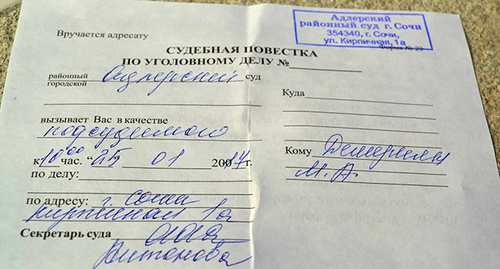 Вручается адресату
Адлерский
районный суд г. Сочи
354340, г. Сочи,
ул. Кирпичная, 1а
Форма № 29
СУДЕБНАЯ ПОВЕСТКА
ПО УГОЛОВНОМУ ДЕЛУ №
районный
городской Адлерский суд
Куда
вызывает Вас в качестве
подсудимого
к 10 00 час. "25 01 2014г.
Кому
М. А.
по делу:
по адресу: г. Сочи
Кирпичная 1а
Секретарь суда